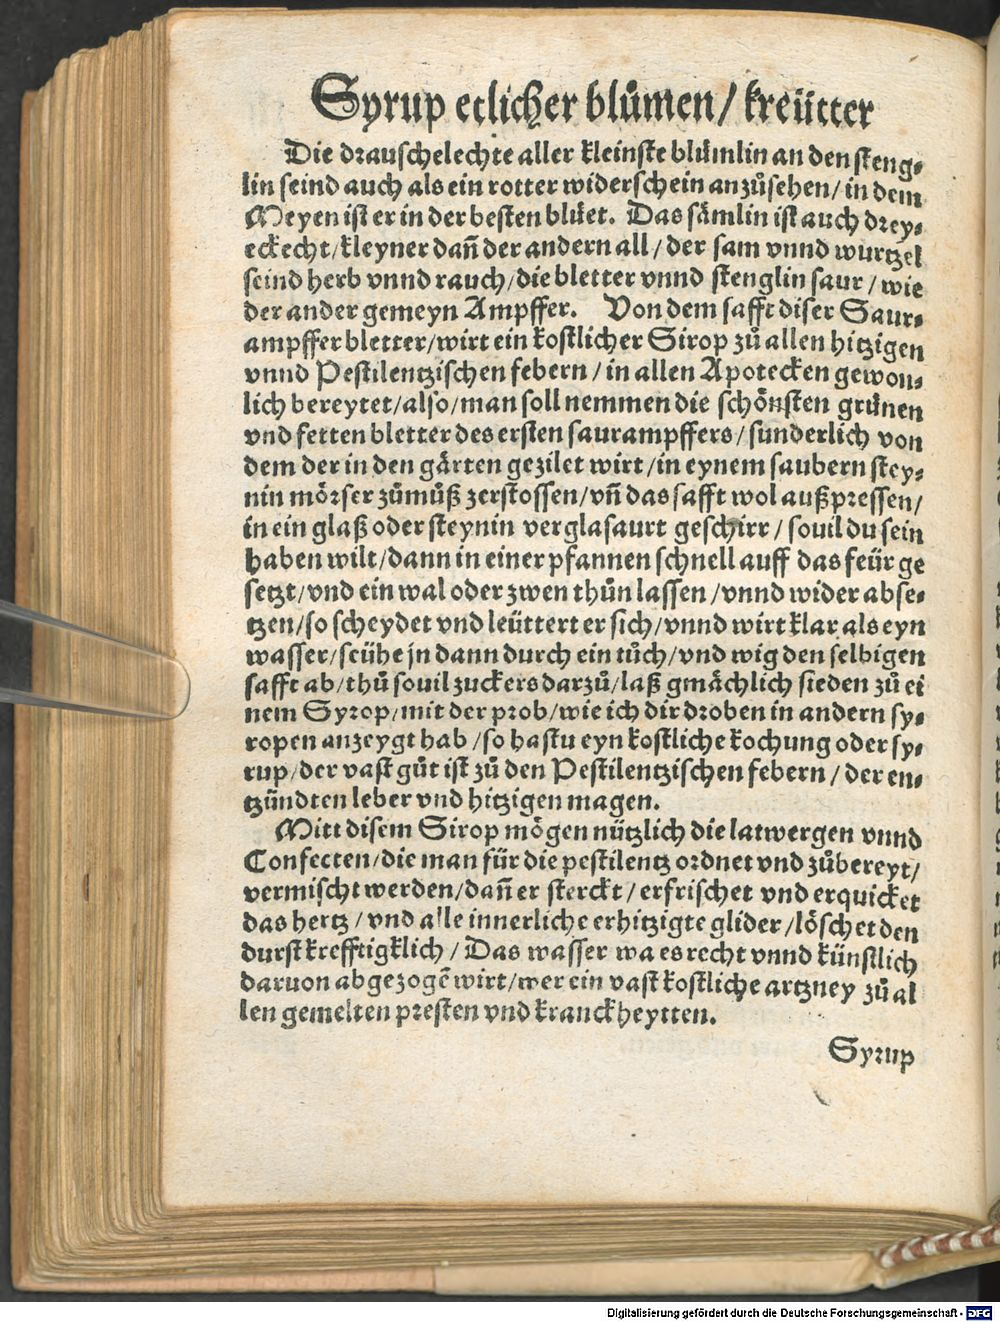 Syrup etlicher blůmen/ kreütter
Die drauschelechte aller kleinste blůmlin an den steng⸗
lin seind auch als ein rotter widerschein anzůsehen/ in dem
Meyen ist er in der besten blůet. Das sămlin ist auch drey⸗
eckecht/ kleyner dañ der andern all/ der sam vnnd wurtzel
seind herb vnnd rauch/ die bletter vnnd stenglin saur/ wie
der ander gemeyn Ampffer. Von dem safft diser Saur⸗
ampffer bletter/ wirt ein kostlicher Sirop zů allen hitzigen
vnnd Pestilentzischen febern/ in allen Apotecken gewon⸗
lich bereytet/ also/ man soll nemmen die schönsten grůnen
vnd fetten bletter des ersten saurampffers/ sunderlich von
dem der in den gărten gezilet wirt/ in eynem saubern stey⸗
nin mörser zůmůß zerstossen/ vñ das safft wol außpressen/
in ein glaß oder steynin verglasaurt geschirr/ souil du sein
haben wilt/ dann in einer pfannen schnell auff das feür ge
setzt/ vnd ein wal oder zwen thůn lassen/ vnnd wider abse⸗
tzen/ so scheydet vnd leüttert er sich/ vnnd wirt klar als eyn
wasser/ seühe jn dann durch ein tůch/ vnd wig den selbigen
safft ab/ thů souil zuckers darzů/ laß gmăchlich sieden zů ei
nem Syrop/ mit der prob/ wie ich dir droben in andern sy⸗
ropen anzeygt hab/ so hastu eyn kostliche kochung oder sy⸗
rup/ der vast gůt ist zů den Pestilentzischen febern/ der en⸗
tzündten leber vnd hitzigen magen.
Mitt disem Sirop mögen nützlich die latwergen vnnd
Confecten/ die man für die pestilentz ordnet vnd zůbereyt/
vermischt werden/ dañ er sterckt/ erfrischet vnd erquicket
das hertz/ vnd alle innerliche erhitzigte glider/ löschet den
durst krefftigklich/ Das wasser wa es recht vnnd künstlich
daruon abgezogẽ wirt/ wer ein vast kostliche artzney zů al
len gemelten presten vnd kranckheytten.
Syrup
Digitalisierung gefördert durch die Deutsche Forschungsgemeinschaft - DFG